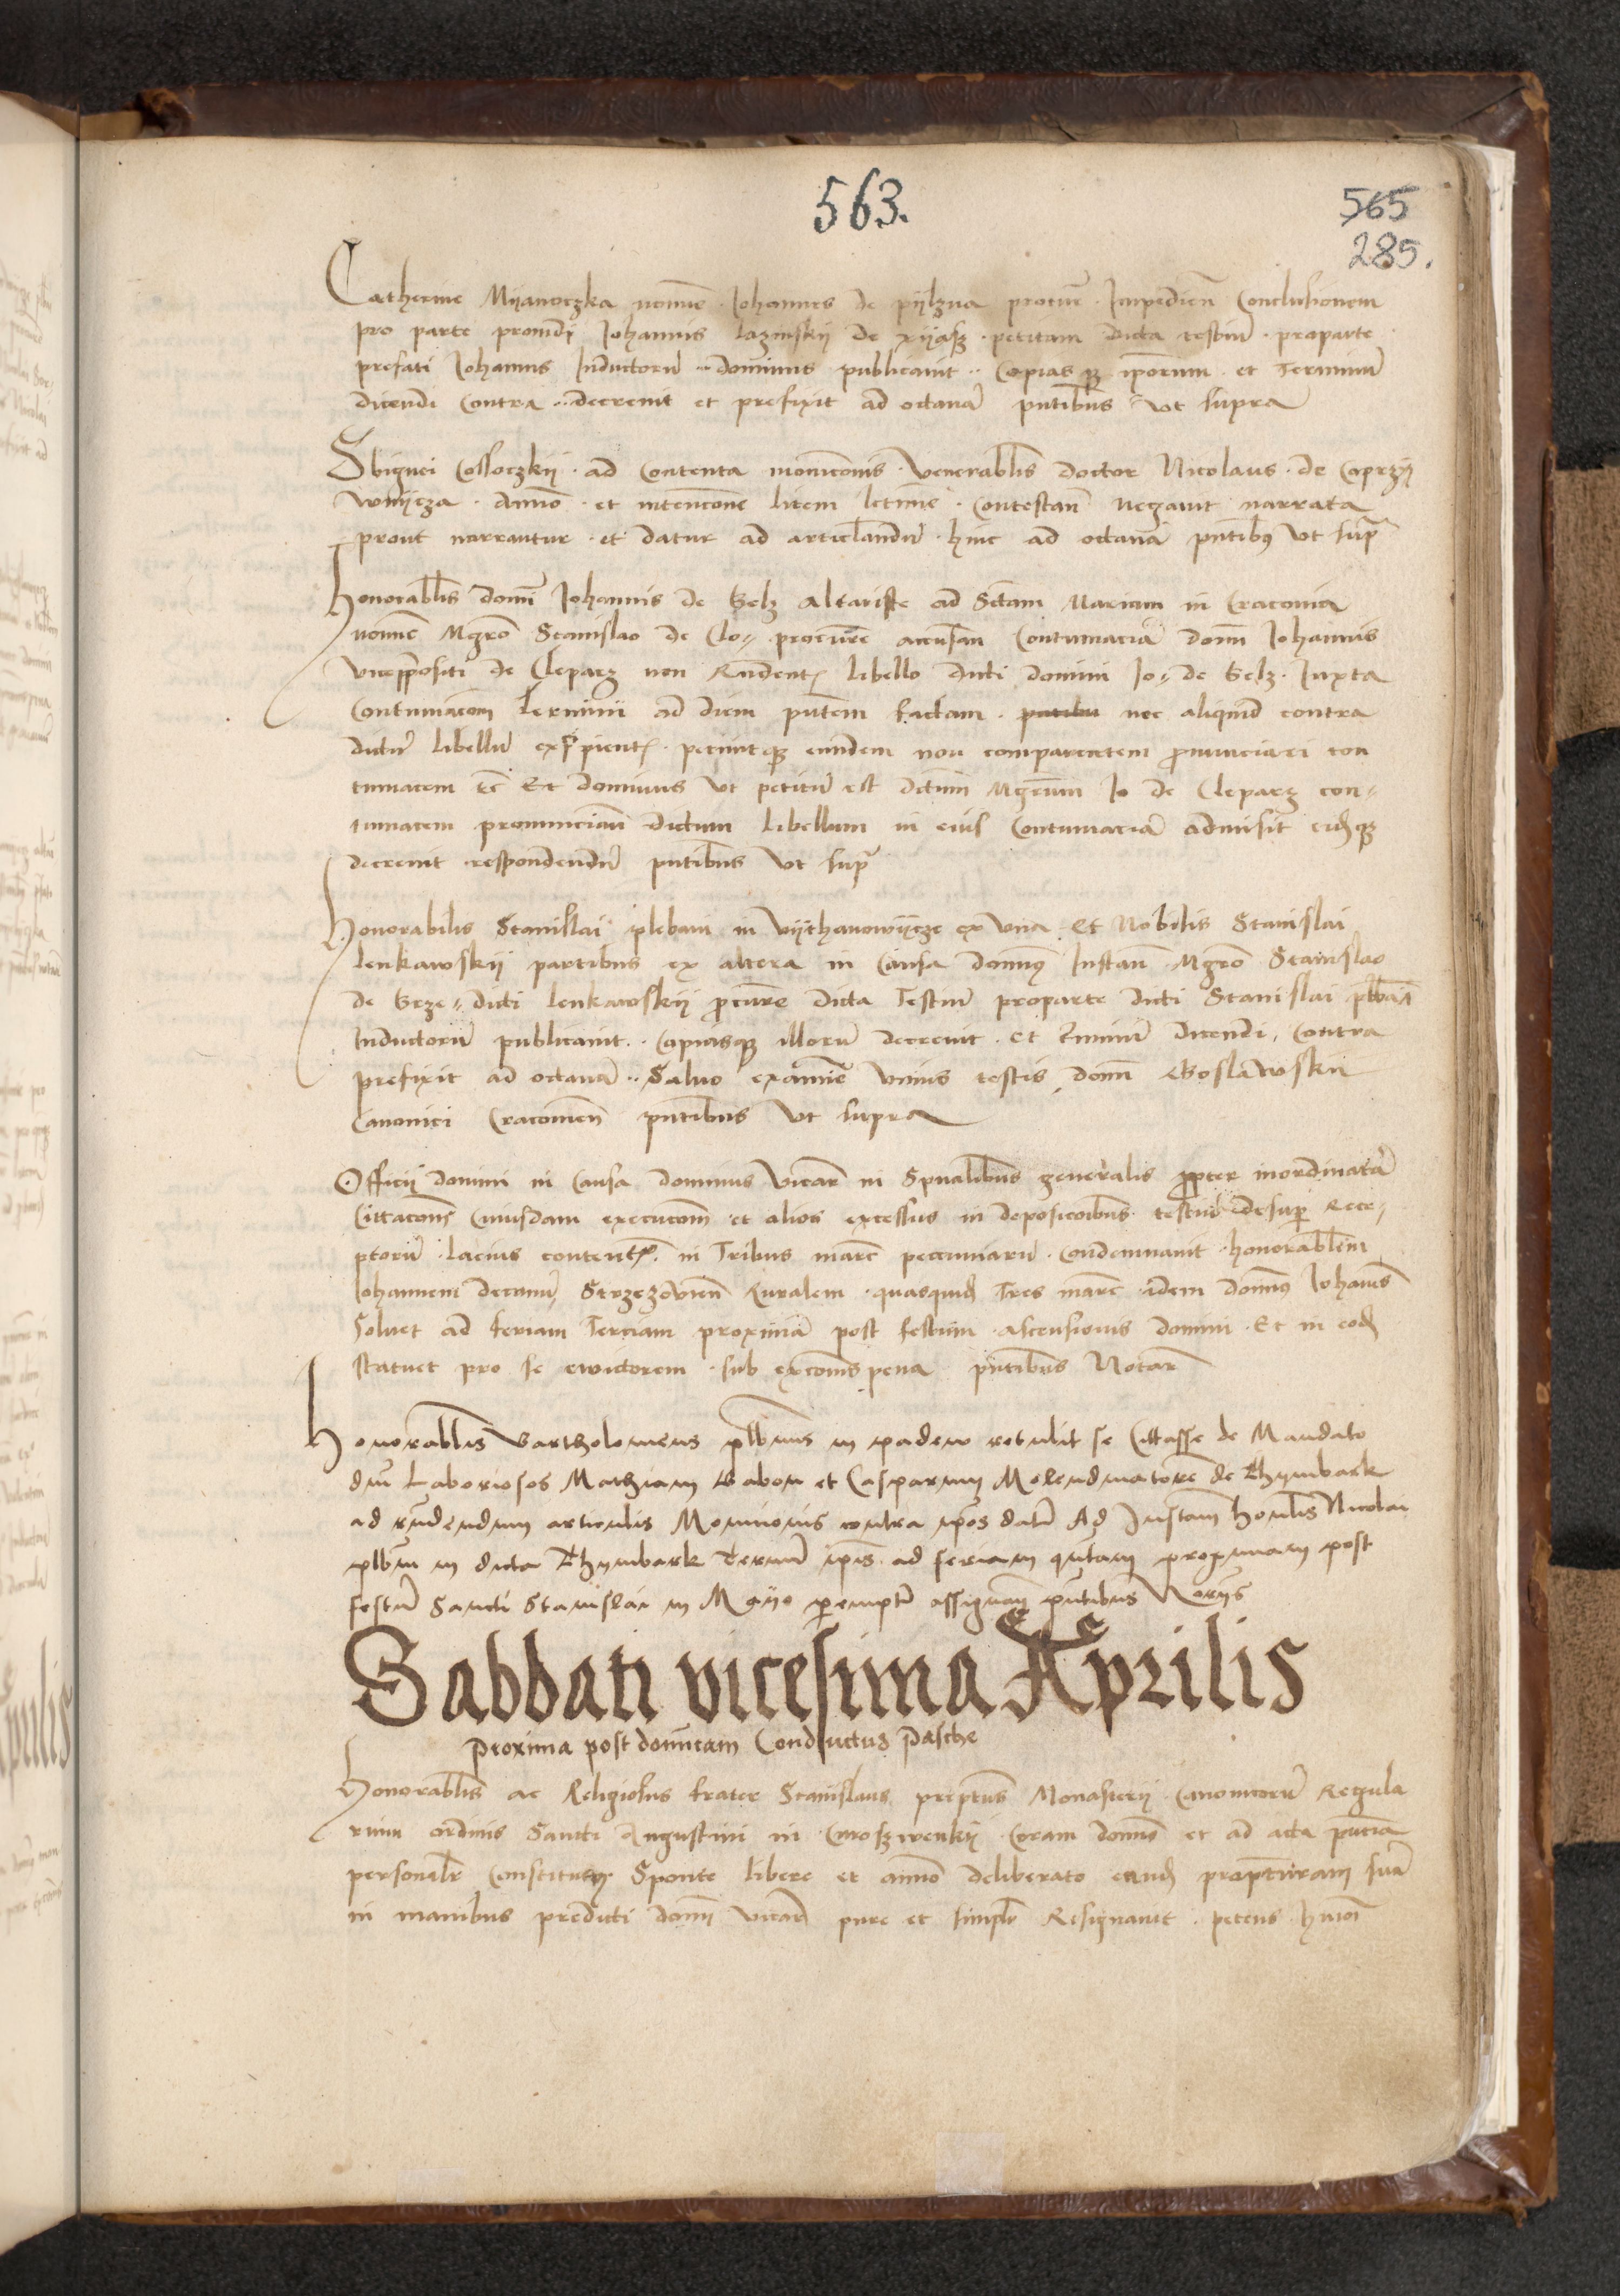 563.
565
285.
Catherine Mijanoczka nomine Johannes de pijlzna procur Impedien Conclusionem
pro parte providi Johannis lazinskij de petitam dicta testiu proparte
prefati Johannis Inductoru dominus publicavit Copias qz ipsorum et Terminu
dicendi Contra decrevit et prefixit ad octava pntibus ut supra
Sbignei Cossoczkij ad Contenta monicionis Venerablis doctor Nicolaus de Coprzij
wnijcza animo et intencione litem legittime Contestan negavit narrata
prout narrantur et datur ad articlandu hinc ad octava pntibus ut supra
honorablis domi Johannis de Belz altariste ad Sctam Mariam in Craconia
nomine Mgro Stanislao de Clo procure accusan Contumacia domi Johannis
vicepositi de Cleparz non Rndentis libello dicti domini Jo de Belz Iuxta
Continuacom Termini ad diem pntem factam nec aliquid contra
dictu libellu excipientis petivitqz eundem non comparentem pronunciari con
tumacem Etc Et dominus ut petitu est dictum Mgrum Jo de Cleparz con
tumacem pronuncian dictum libellum in eius Contumacia admisit eidqz
decrevit respondendu pntibus ut supra
Honorabilis Stanislai plebani in Vijthanowijcze ex una Et Nobilis Stanislai
lenkawskij partibus ex altera in Causa dominus Instan Mgro Stanislao
de Brze dicti lenkawskij procure dicta Testiu proparte dicti Stanislai plbani
Inductoru publicavit Copiasqz illoru decrevit et Terminu dicendi Contra
prefixit ad octava Salvo examine unius testis domi Goslawskij
Canonici Cracovien pntibus ut supra
Officij domini in Causa dominus vicar in Spualibus generalis propter inordinata
Cittacois Cuiusdam execucom et alios excessus in deposicoibus testiu desup Rece
ptoru lacius contentos in Tribus marc pecuniaru Condemnavit honorablem
Johannem decanu Strzezovien Ruralem quasquid Tres marc idem dominus Johannes
Solvet ad feriam Terciam proxima post festum ascensionis domini Et in eod
statuet pro se ewictorem sub excomis pena pntibus Notar
Honorablis Bartholomeus plbnus in padew retulit se Cittasse de Mandato
dni Laboriosos Mathiam Babon et Casparum Molendinatore de Thymbark
ad rndendum articulis Monicionis contra ipos datis Ad Instam honlis Nicolai
plbni in dicta Thymbark Terminu ipis ad feriam quintam proximam post
festu Sancti Stanislai in Maijo peremptor assignan pntibus Norijs
Sabbati vicesima Aprilis
Proxima post domicam Conductus Pasche
Honorablis ac Religiosus frater Stanislaus prepitus Monasterij Canonicoru Regula
rium ordinis Sancti Augustini in Coram domino et ad acta pntia
personalr Constitutus Sponte libere et animo deliberato eand prepituram sua
in manibus predicti domi vicar pure et simplr Resignavit petens